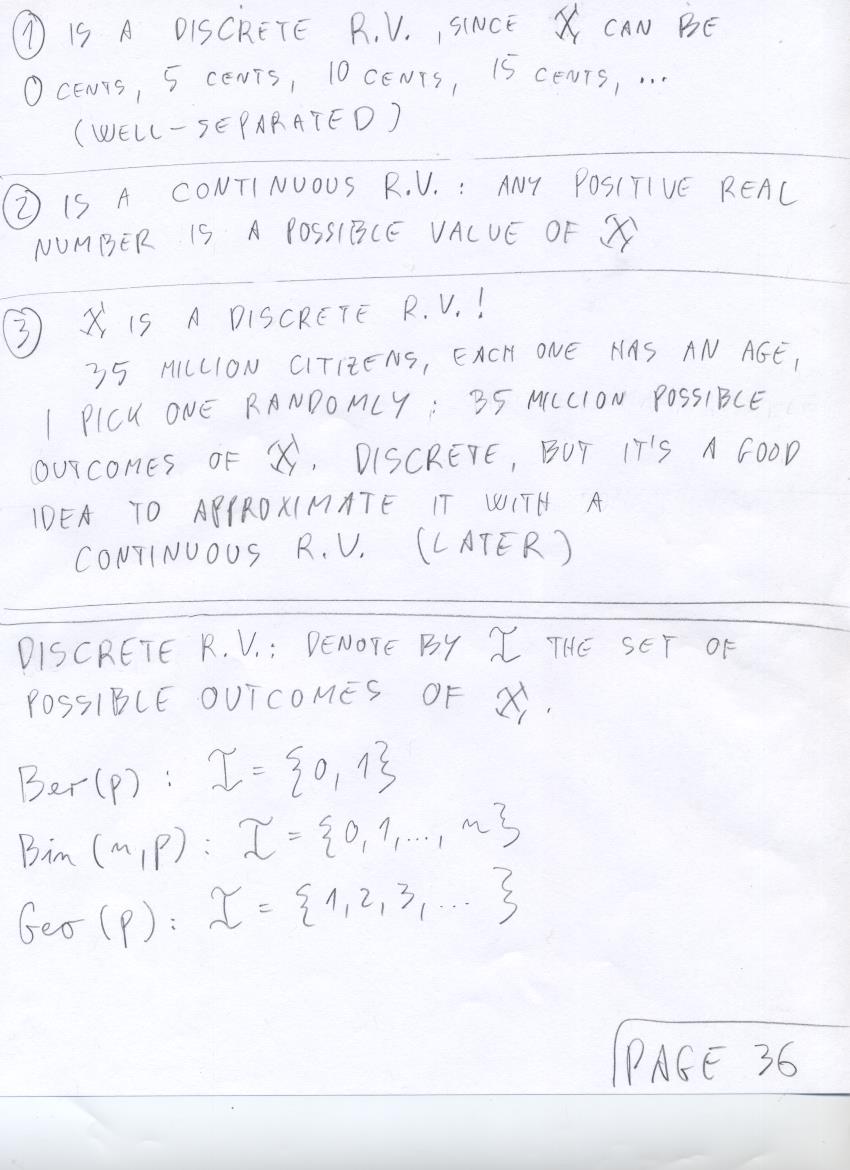 ① IS A DISCRETE R.V., SINCE X CAN BE
0 CENTS, 5 CENTS, 10 CENTS, 15 CENTS, ...
(WELL-SEPARATED)
② IS A CONTINUOUS R.V.: ANY POSITIVE REAL
NUMBER IS A POSSIBLE VALUE OF X
③ X IS A DISCRETE R.V.!
35 MILLION CITIZENS, EACH ONE HAS AN AGE,
I PICK ONE RANDOMLY: 35 MILLION POSSIBLE
OUTCOMES OF X. DISCRETE, BUT IT'S A GOOD
IDEA TO APPROXIMATE IT WITH A
CONTINUOUS R.V. (LATER)
DISCRETE R.V.: DENOTE BY I THE SET OF
POSSIBLE OUTCOMES OF X.
Ber(p): I = {0, 1}
Bin(n,p): I = {0,1,..., n}
Geo(p): I = {1,2,3,... }
PAGE 36